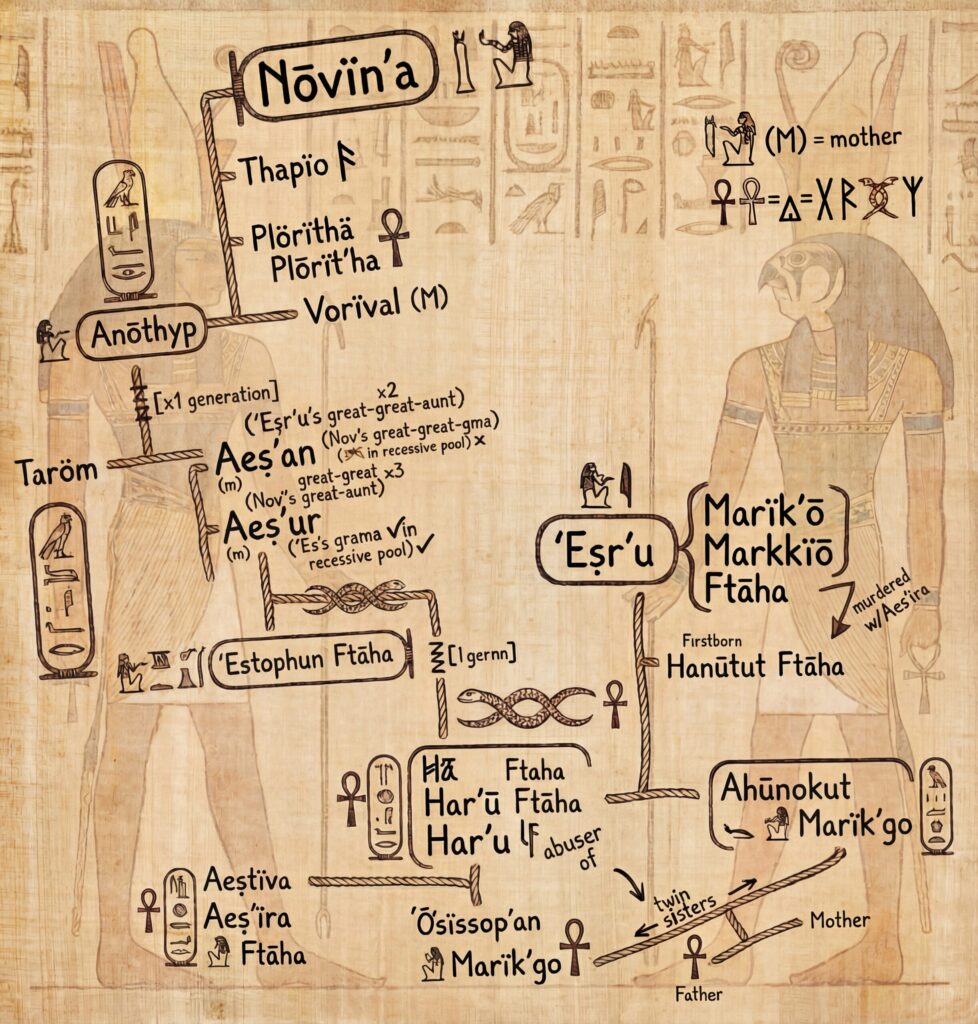 Nōvïn'a
(M) = mother
Thapïo ᚨ
Plörïthä
Plōrït'ha
Vorïval (M)
Anōthyp
[x1 generation]
x2
('Eṣr'u's great-great-aunt)
(Nov's great-great-gma)
in recessive pool) x
Taröm
Aeṣ'an
(m)
great-great x3
(Nov's great-aunt)
Aeṣ'ur
(m)
('Es's grama ✓in
recessive pool) ✓
'Eṣr'u
Marïk'ō
Markkïō
Ftāha
murdered
w/Aes'ira
'Estophun Ftāha
[1 gernn]
Firstborn
Hanūtut Ftāha
Hā Ftaha
Har'ū Ftāha
Har'u
abuser
of
Ahūnokut
Marïk'go
twin
sisters
Aeṣtïva
Aeṣ'ïra
Ftāha
'Ōsïssop'an
Marïk'go
Mother
Father